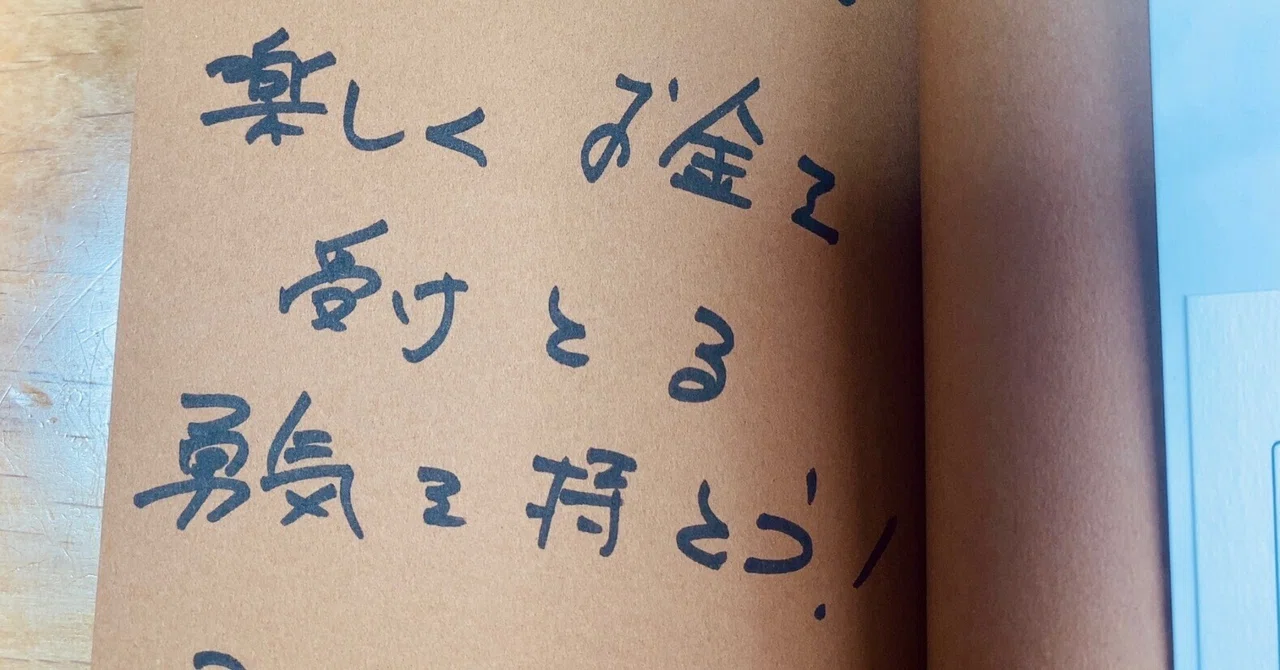 楽しくお金を
受けとる
勇気を持とう!